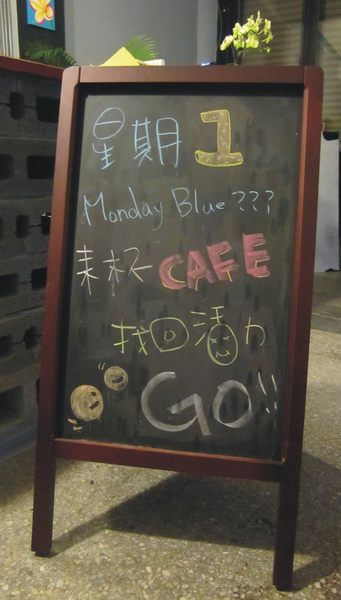 星期1
Monday Blue???
來杯CAFE
找回活力
GO!!